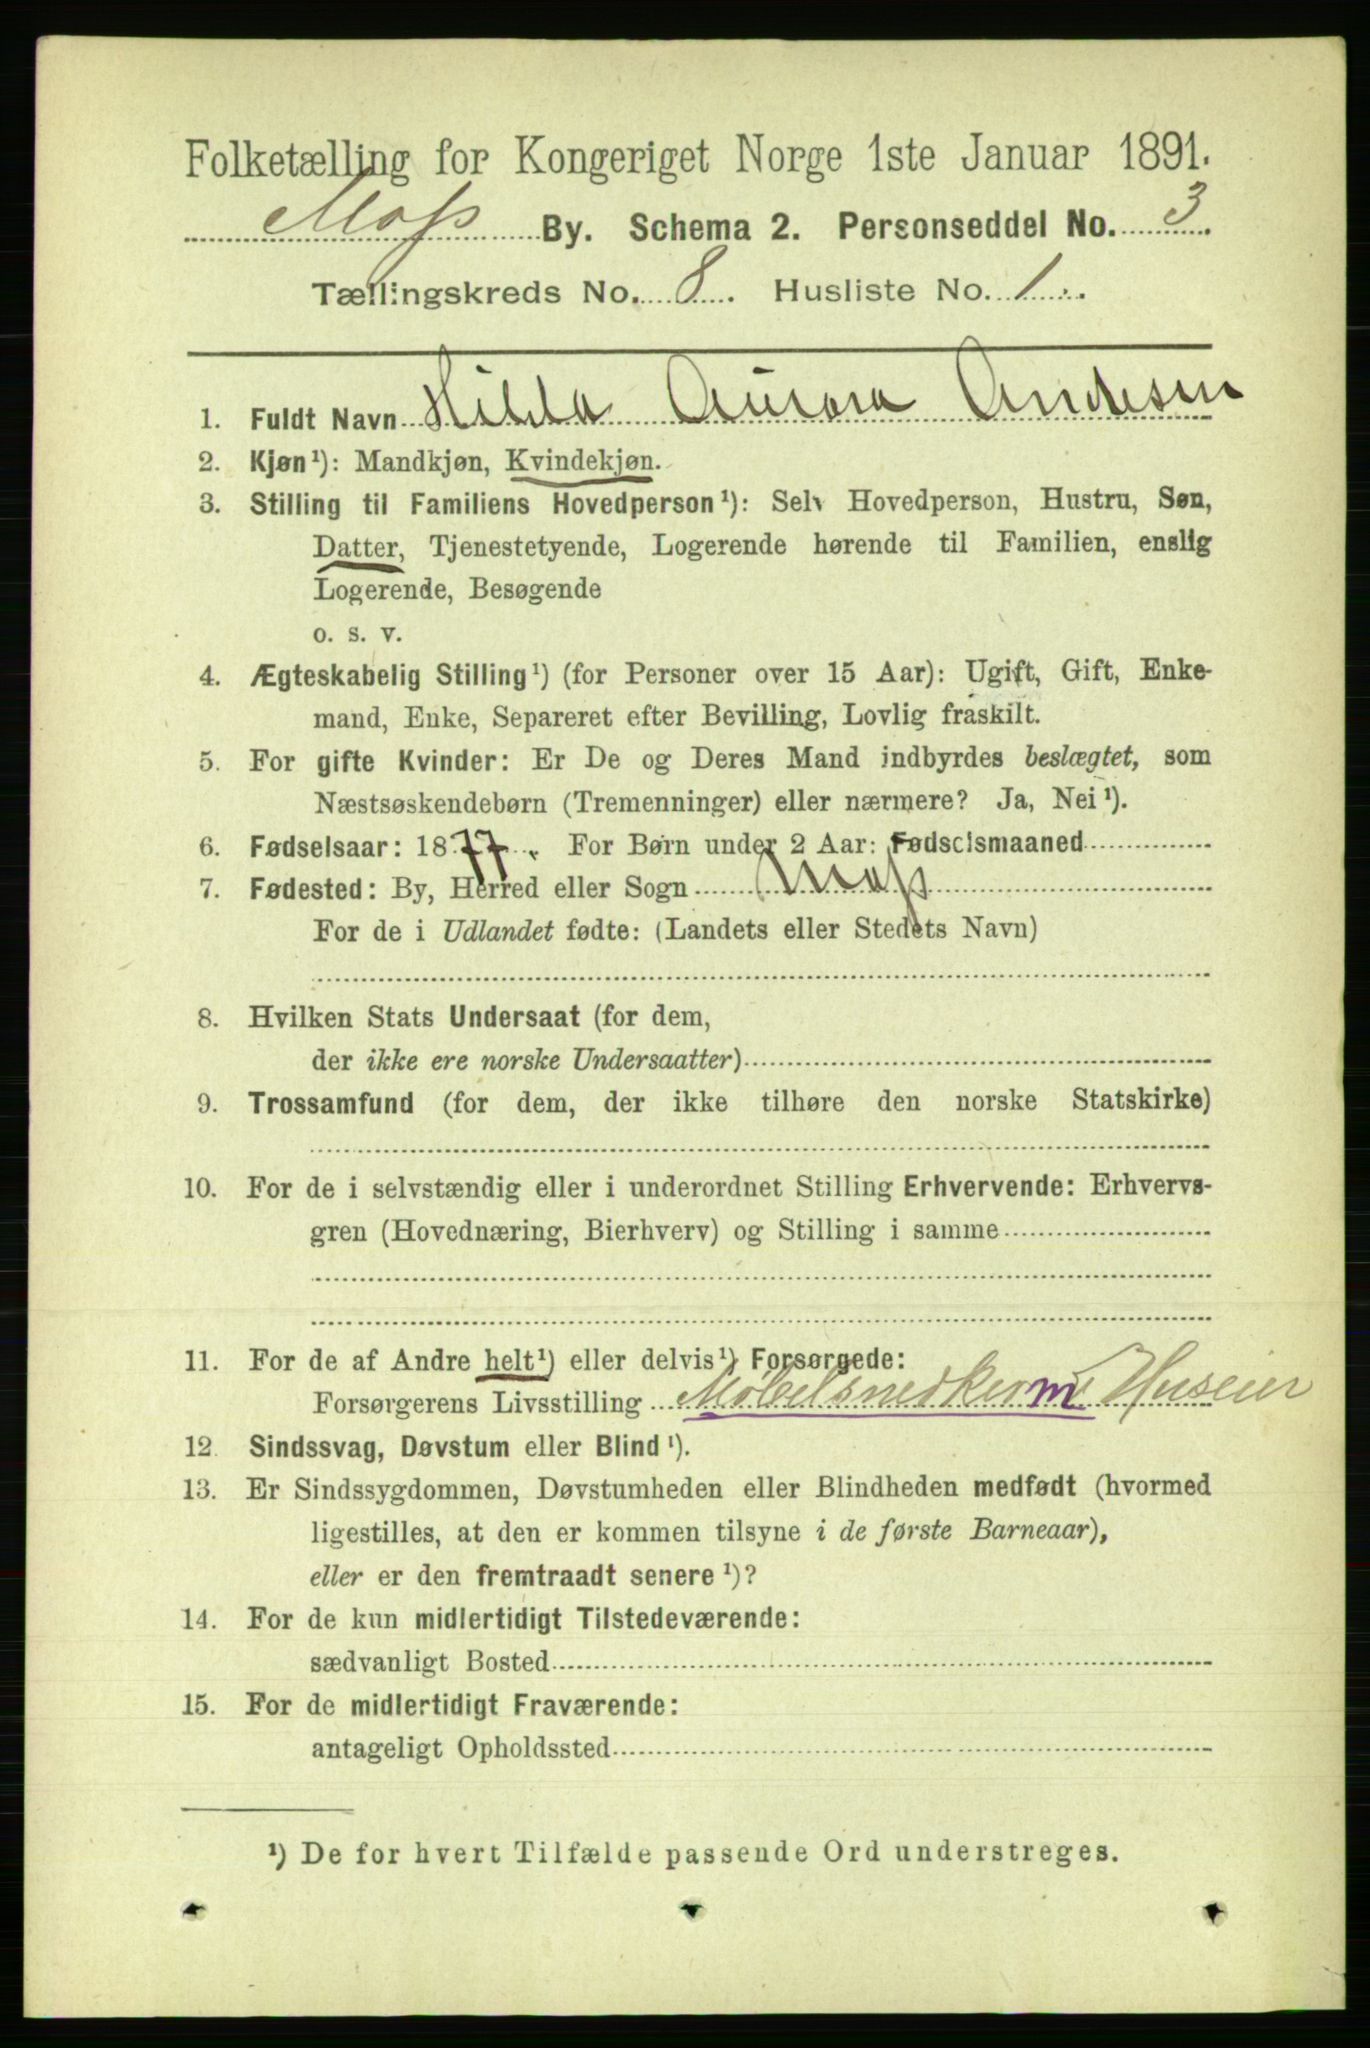 Folketælling for Kongeriget Norge 1ste Januar 1891.
Moss By. Schema 2. Personseddel No. 3.
Tællingskreds No. 8. Husliste No. 1.
1. Fuldt Navn Hilda Aurora Andesen
2. Kjøn¹): Mandkjøn, Kvindekjøn.
3. Stilling til Familiens Hovedperson¹): Selv Hovedperson, Hustru, Søn,
Datter, Tjenestetyende, Logerende hørende til Familien, enslig
Logerende, Besøgende
o. s. v.
4. Ægteskabelig Stilling¹) (for Personer over 15 Aar): Ugift, Gift, Enke-
mand, Enke, Separeret efter Bevilling, Lovlig fraskilt.
5. For gifte Kvinder: Er De og Deres Mand indbyrdes beslægtet, som
Næstsøskendebørn (Tremenninger) eller nærmere? Ja, Nei¹).
6. Fødselsaar: 1877. For Børn under 2 Aar: Fødselsmaaned
7. Fødested: By, Herred eller Sogn Moss
For de i Udlandet fødte: (Landets eller Stedets Navn)
8. Hvilken Stats Undersaat (for dem,
der ikke ere norske Undersaatter)
9. Trossamfund (for dem, der ikke tilhøre den norske Statskirke)
10. For de i selvstændig eller i underordnet Stilling Erhvervende: Erhvervs-
gren (Hovednæring, Bierhverv) og Stilling i samme
11. For de af Andre helt¹) eller delvis¹) Forsørgede:
Forsørgerens Livsstilling Møbelsnedkerm Huseier
12. Sindssvag, Døvstum eller Blind¹).
13. Er Sindssygdommen, Døvstumheden eller Blindheden medfødt (hvormed
ligestilles, at den er kommen tilsyne i de første Barneaar),
eller er den fremtraadt senere¹)?
14. For de kun midlertidigt Tilstedeværende:
sædvanligt Bosted
15. For de midlertidigt Fraværende:
antageligt Opholdssted
¹) De for hvert Tilfælde passende Ord understreges.